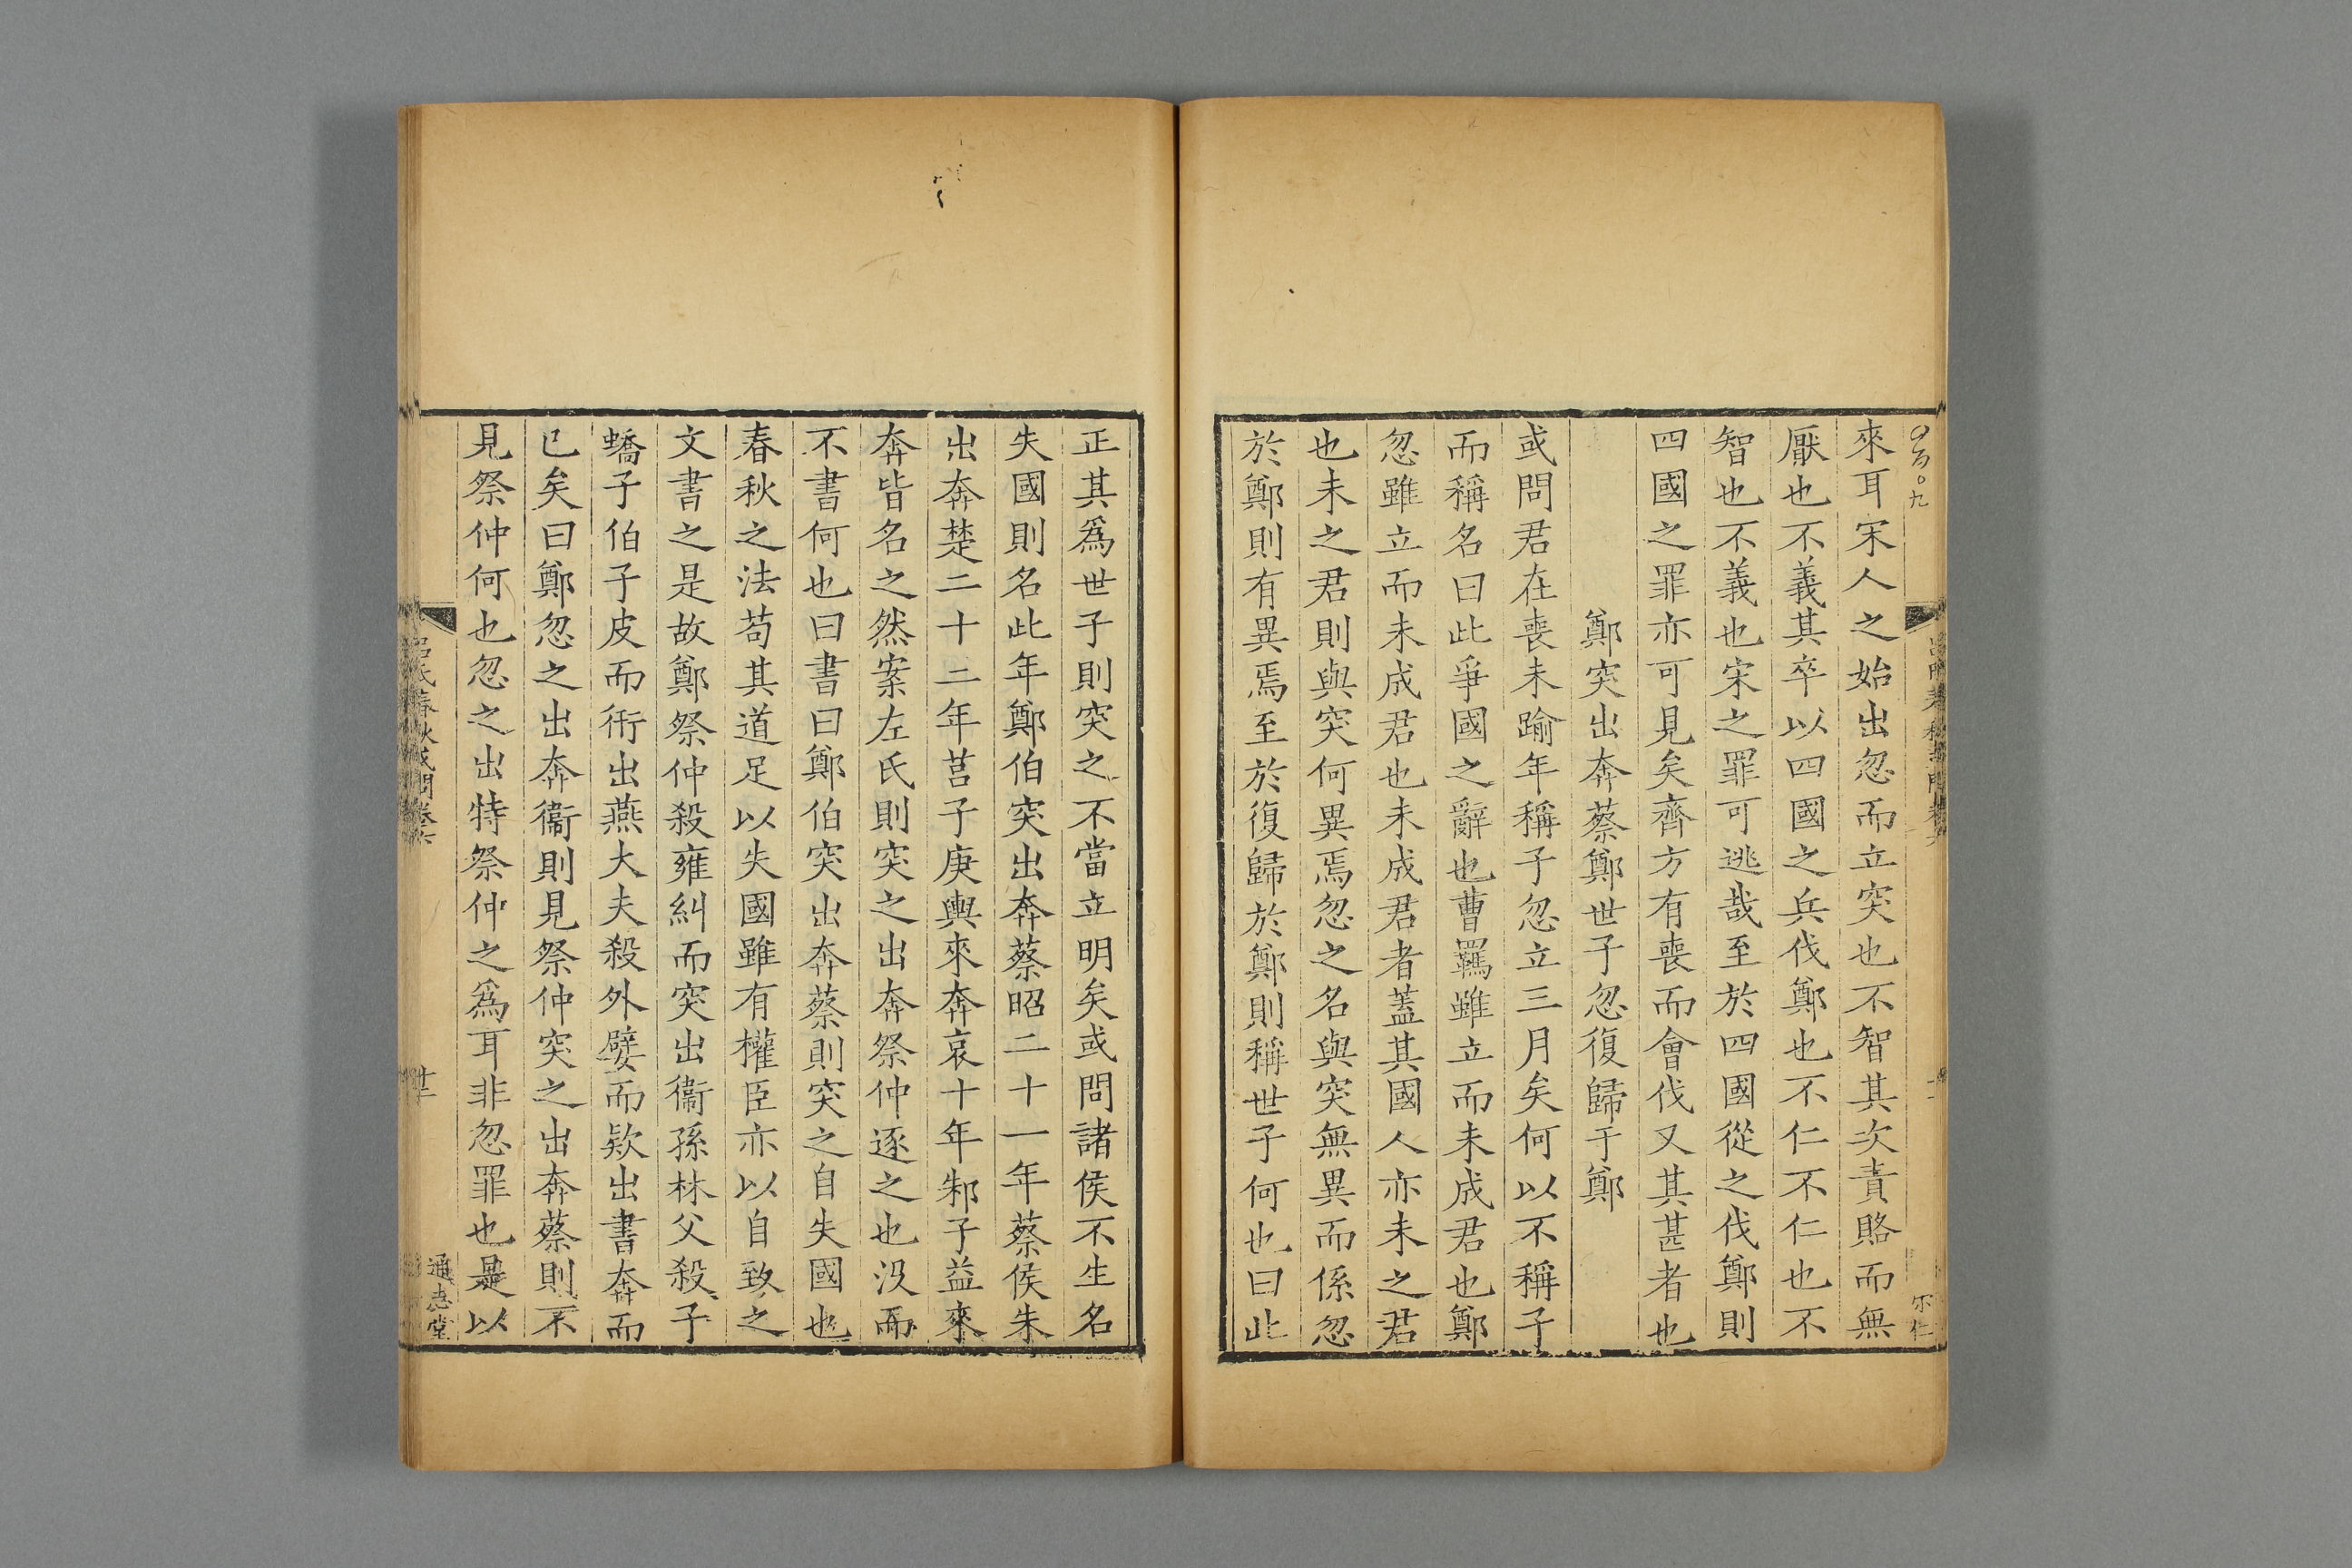 來耳宋人之始出忽而立突也不智其次責賂而無
厭也不義其卒以四國之兵伐鄭也不仁不仁也不
智也不義也宋之罪可逃哉至於四國從之伐鄭則
四國之罪亦可見矣齊方有喪而會伐又其甚者也
鄭突出奔蔡鄭世子忽復歸于鄭
或問君在喪未踰年稱子忽立三月矣何以不稱子
而稱名曰此爭國之辭也曹羈雖立而未成君也鄭
忽雖立而未成君也未成君者蓋其國人亦未之君
也未之君則與突何異焉忽之名與突無異而係忽
於鄭則有異焉至於復歸於鄭則稱世子何也曰此
正其爲世子則突之不當立明矣或問諸侯不生名
失國則名此年鄭伯突出奔蔡昭二十一年蔡侯朱
出奔楚二十三年莒子庚輿來奔哀十年邾子益來
奔皆名之然案左氏則突之出奔祭仲逐之也沒而
不書何也曰書曰鄭伯突出奔蔡則突之自失國也
春秋之法苟其道足以失國雖有權臣亦以自致之
文書之是故鄭祭仲殺雍糾而突出衞孫林父殺子
蟜子伯子皮而衎出燕大夫殺外嬖而欵出書奔而
已矣曰鄭忽之出奔衞則見祭仲突之出奔蔡則不
見祭仲何也忽之出特祭仲之爲耳非忽罪也是以
呂氏春秋或問卷六
通志堂